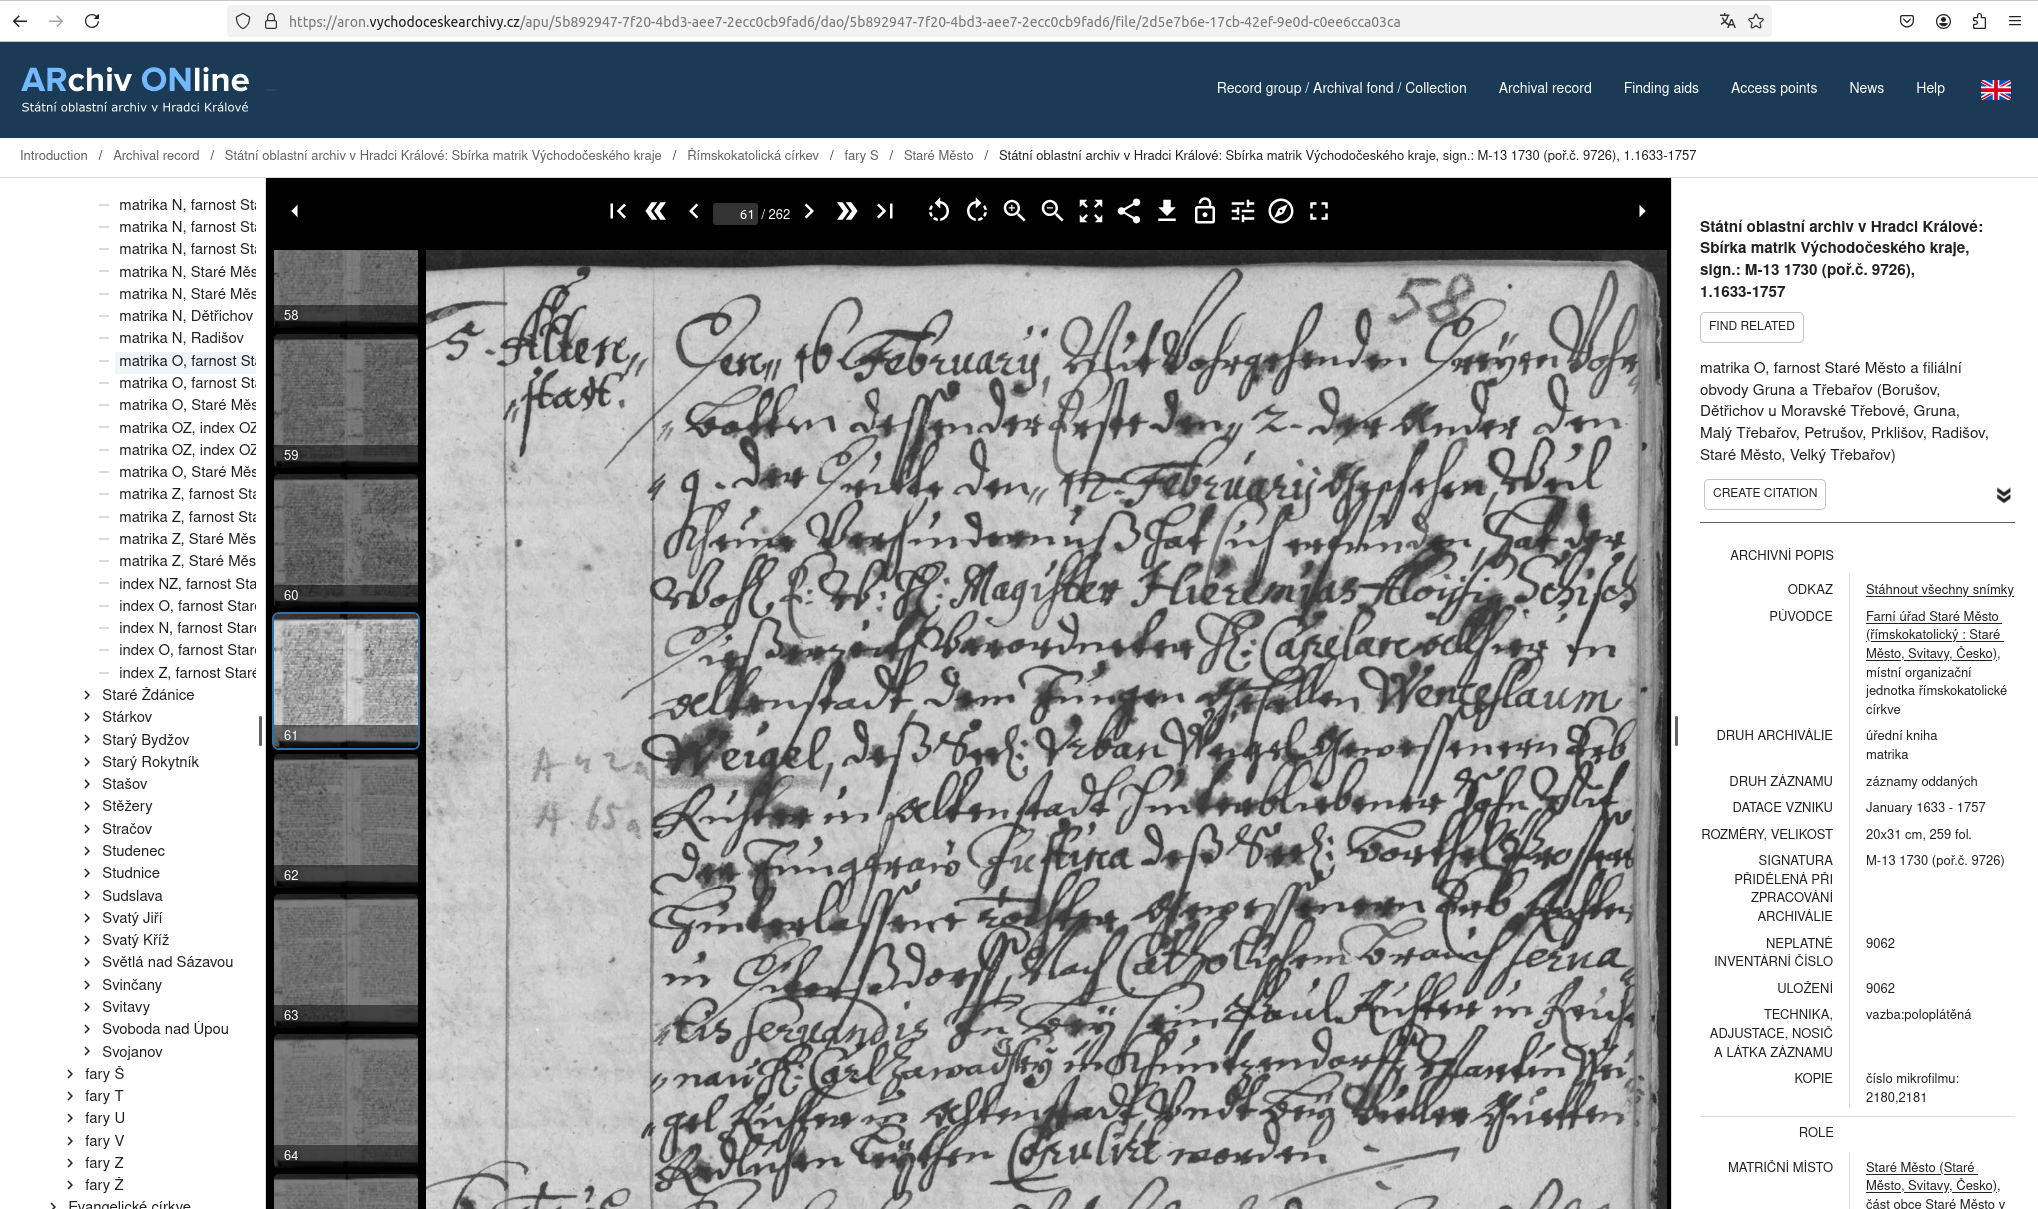 https://aron.vychodoceskearchivy.cz/apu/5b892947-7f20-4bd3-aee7-2ecc0cb9fad6/dao/5b892947-7f20-4bd3-aee7-2ecc0cb9fad6/file/2d5e7b6e-17cb-42ef-9e0d-c0ee6cca03ca
ARchiv ONline
Státní oblastní archiv v Hradci Králové
Record group / Archival fond / Collection
Archival record
Finding aids
Access points
News
Help
Introduction / Archival record / Státní oblastní archiv v Hradci Králové: Sbírka matrik Východočeského kraje / Římskokatolická církev / fary S / Staré Město / Státní oblastní archiv v Hradci Králové: Sbírka matrik Východočeského kraje, sign.: M-13 1730 (poř.č. 9726), 1.1633-1757
matrika N, farnost Sta
matrika N, farnost Sta
matrika N, farnost Sta
matrika N, Staré Měs
matrika N, Staré Měs
matrika N, Dětřichov
matrika N, Radišov
matrika O, farnost Sta
matrika O, farnost Sta
matrika O, Staré Měs
matrika OZ, index OZ
matrika OZ, index OZ
matrika O, Staré Měs
matrika Z, farnost Sta
matrika Z, farnost Sta
matrika Z, Staré Měs
matrika Z, Staré Měs
index NZ, farnost Sta
index O, farnost Staré
index N, farnost Staré
index O, farnost Staré
index Z, farnost Staré
Staré Ždánice
Stárkov
Starý Bydžov
Starý Rokytník
Stašov
Stěžery
Stračov
Studenec
Studnice
Sudslava
Svatý Jiří
Svatý Kříž
Světlá nad Sázavou
Svinčany
Svitavy
Svoboda nad Úpou
Svojanov
fary Š
fary T
fary U
fary V
fary Z
fary Ž
Evangelické církve
61 / 262
58
59
60
61
62
63
64
58
5. Alten
stadt.
Den 16 February, Mit Vohrgehenden
dessen der Erste den 2. der Ander den
9. der Dritte den 12. February geschehen, Weil
Kheine Verhindernuß hat sich erfunden, hat der
Wohl E: W: H: Magister Hieremias Aloisius
verordneter H: Capelan allhier in
Altenstadt, dem Jungen gesellen Wenceslaum
Weigel, deß Seel: Urban Weigel Gewessenen Erb
A 42
A 65a
Richter in Altenstadt hinterbliebener Sohn Mit
der Jungfraw Justina deß Seel:
hinterlassene tochter gewessenen Erb Richter
in Nach Catholischem Brauch serva
tis servandis Paul Richter in
naw H: Carl Zawadsky in Khuntzendorff, Martin Wei
gel Richter in Altenstadt Undt
Redlichen Leythen Copulirt worden
Státní oblastní archiv v Hradci Králové:
Sbírka matrik Východočeského kraje,
sign.: M-13 1730 (poř.č. 9726),
1.1633-1757
FIND RELATED
matrika O, farnost Staré Město a filiální
obvody Gruna a Třebařov (Borušov,
Dětřichov u Moravské Třebové, Gruna,
Malý Třebařov, Petrušov, Prklišov, Radišov,
Staré Město, Velký Třebařov)
CREATE CITATION
ARCHIVNÍ POPIS
ODKAZ
Stáhnout všechny snímky
PŮVODCE
Farní úřad Staré Město
(římskokatolický : Staré
Město, Svitavy, Česko),
místní organizační
jednotka římskokatolické
církve
DRUH ARCHIVÁLIE
úřední kniha
matrika
DRUH ZÁZNAMU
záznamy oddaných
DATACE VZNIKU
January 1633 - 1757
ROZMĚRY, VELIKOST
20x31 cm, 259 fol.
SIGNATURA
PŘIDĚLENÁ PŘI
ZPRACOVÁNÍ
ARCHIVÁLIE
M-13 1730 (poř.č. 9726)
NEPLATNÉ
INVENTÁRNÍ ČÍSLO
9062
ULOŽENÍ
9062
TECHNIKA,
ADJUSTACE, NOSIČ
A LÁTKA ZÁZNAMU
vazba:poloplátěná
KOPIE
číslo mikrofilmu:
2180,2181
ROLE
MATRIČNÍ MÍSTO
Staré Město (Staré
Město, Svitavy, Česko),
část obce Staré Město v